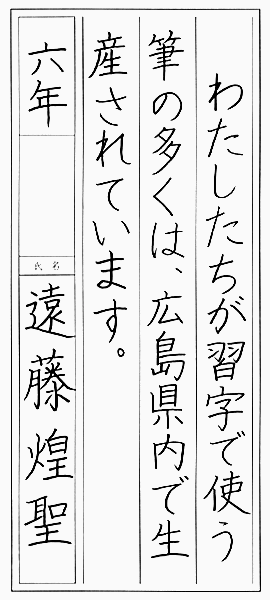 わたしたちが習字で使う
筆の多くは、広島県内で生
産されています。
六年
氏名
遠藤煌聖